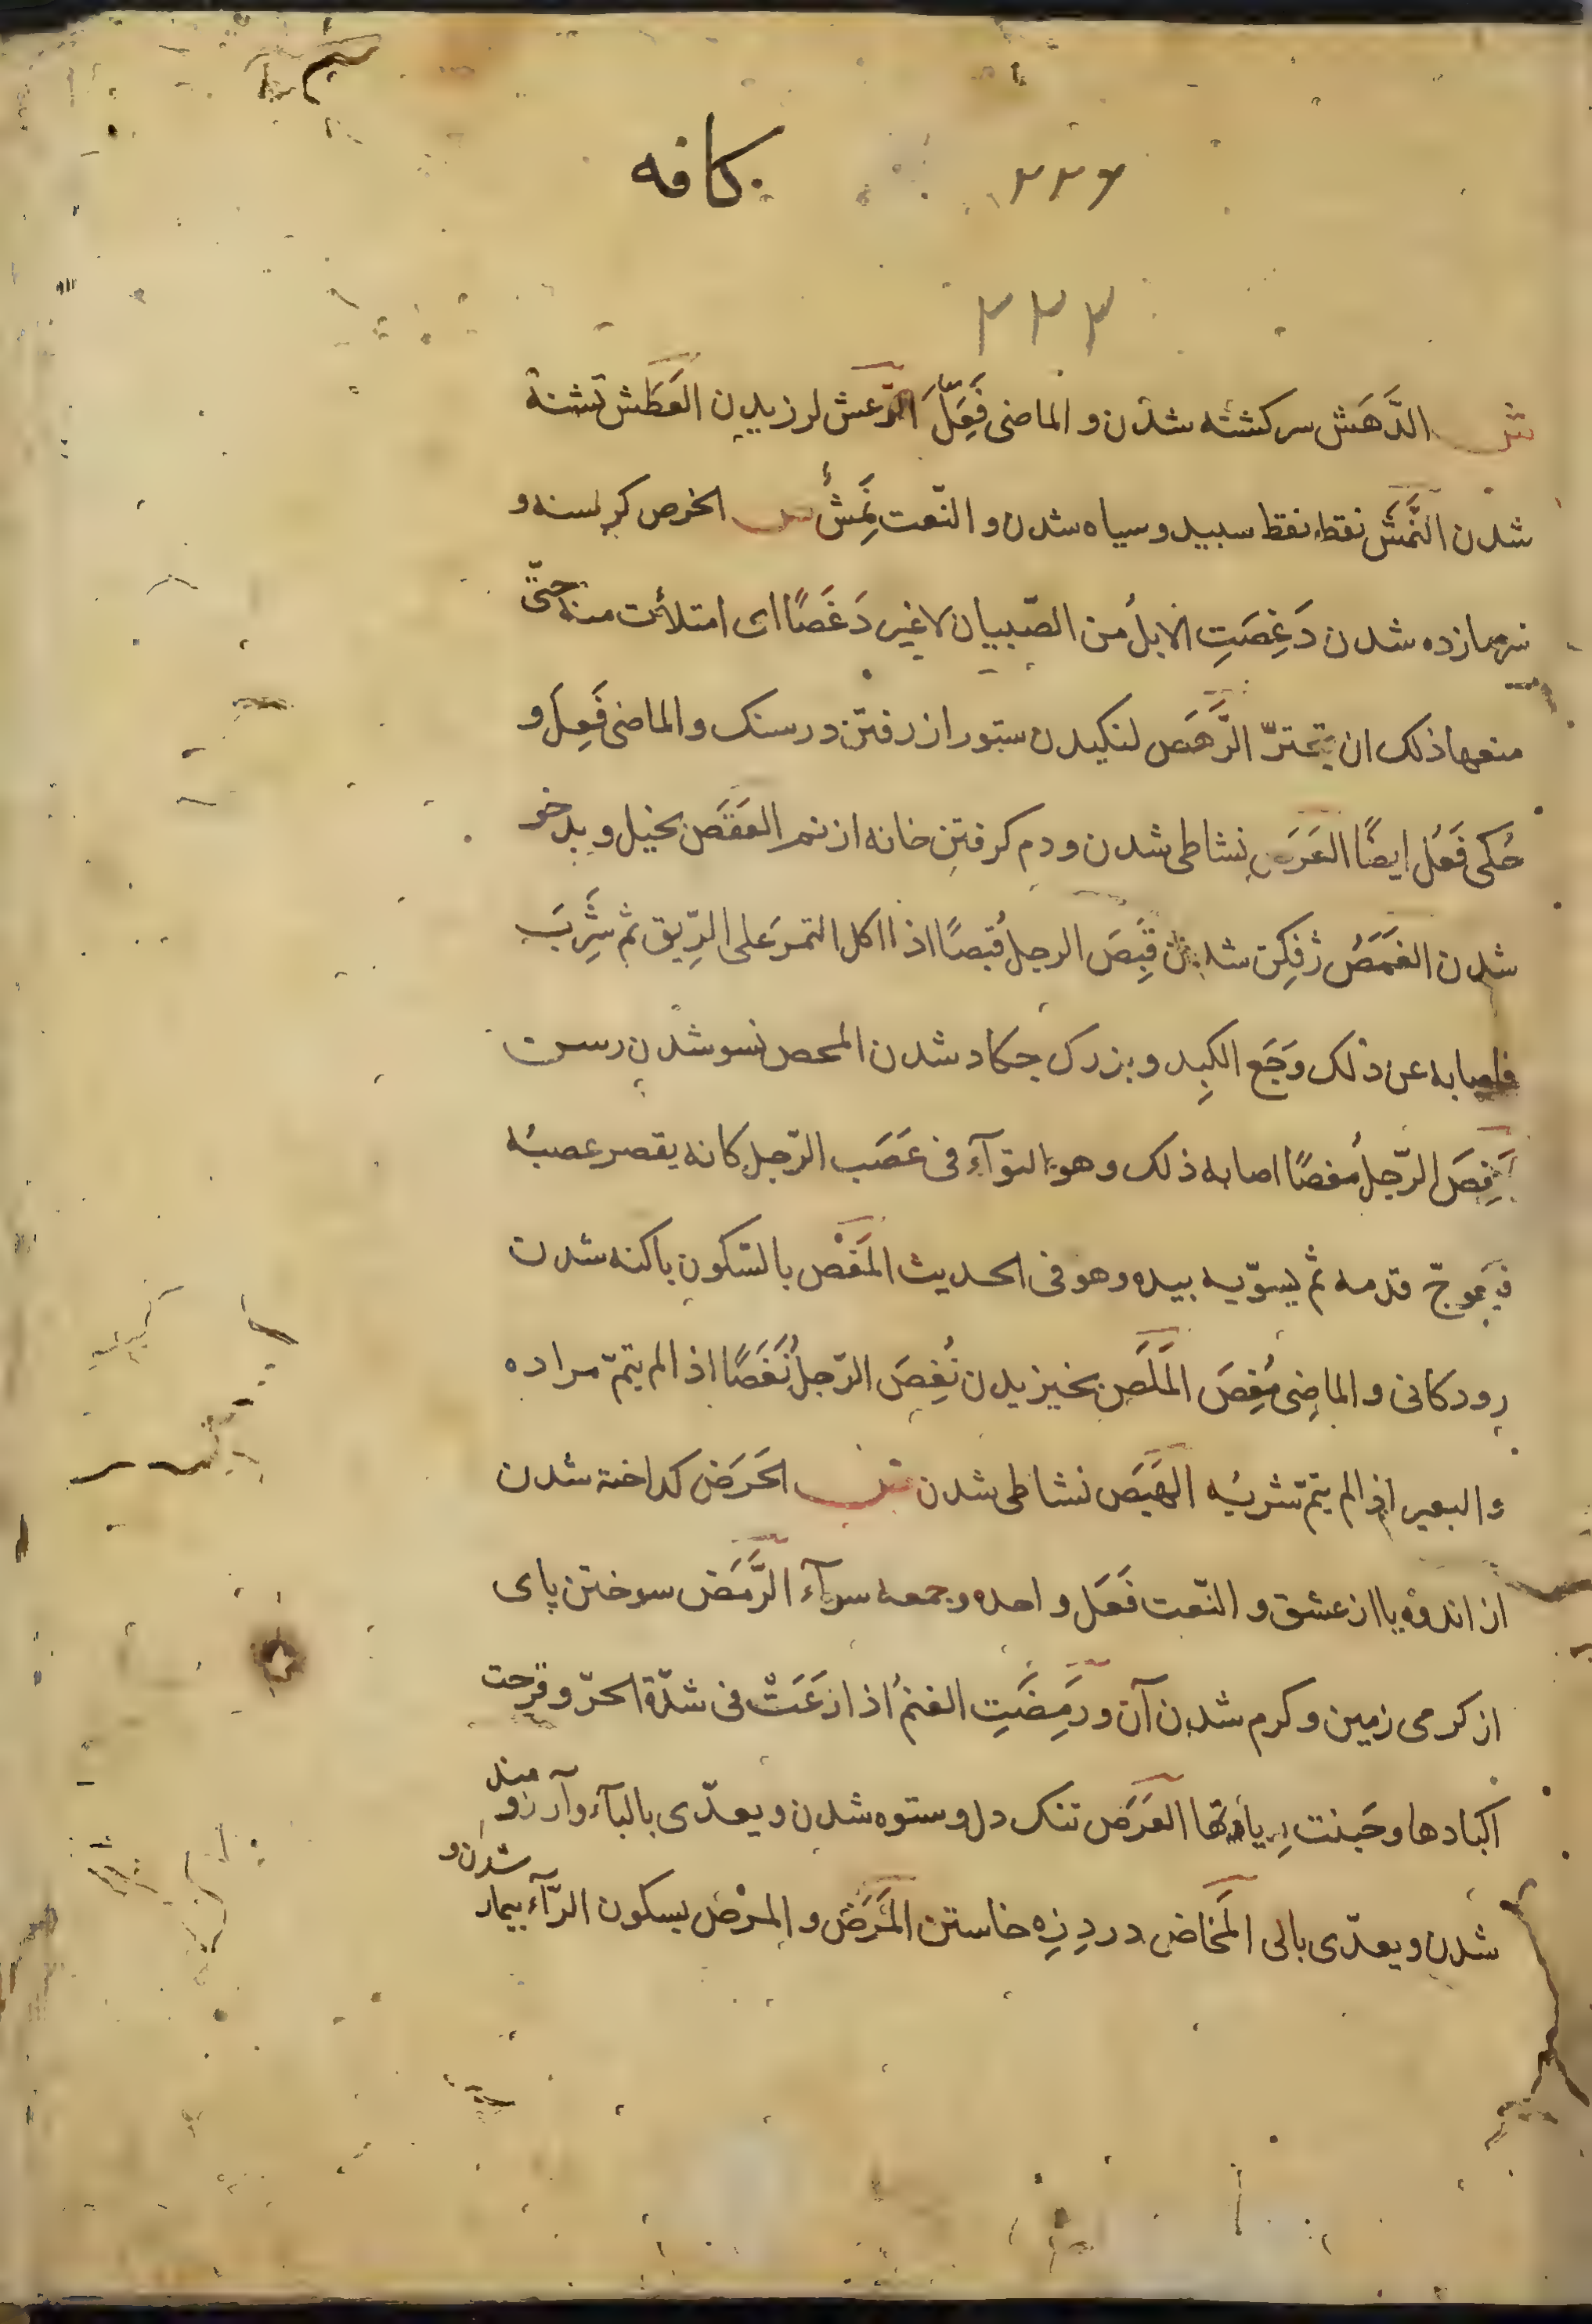 کافه
۲۲۶
۲۲۳
ش الدَّهَش سرکشته شدن و الماضی فَعِلَ الرَّعش لرزیدن العَطَش تشنه
شدن النَّمَش نقطه نقطه سبید و سیاه شدن و النّعت نَمِشٌ ص الخرص کرسنه و
سرمازده شدن دَغِصَتِ الابلُ من الصّلیان لاغیر دَغَصًا ای امتلأت منه حتّی
منعها ذلک ان تجترّ الرَّهَص لنکیدن ستور از رفتن در سنک و الماضی فَعِلَ و
حُکی فَعُل ایضًا العَرَص نشاطی شدن و دم کرفتن خانه از نم العَقَص بخیل و بدخو
شدن الغَمَصُ ژفکن شدن قَبِصَ الرجلُ قبصًا اذا اکل التمرَ علی الرِّیق ثم شَرِبَ
فاصابه عن ذلک وَجَع الکَبِد و بزرک جکاد شدن المحص نسو شدن رسن
مَغِصَ الرّجلُ مغصًا اصابه ذلک و هو التوآء فی عَصَب الرّجل کانه یقصر عصبُه
فیعوجّ قدمه ثم یسوّیه بیده و هو فی الحدیث المَغْص بالسّکون باکنه شدن
رودکانی و الماضِی مُغِصَ المَلَص بخیزیدن نُغِصَ الرّجلُ نَغَصًا اذا لم یتمّ مراده
و البعیر اذا لم یتمّ شربُه الهَبَص نشاطی شدن ض الحَرَض کداخته شدن
از اندوه یا از عشق و النّعت فَعَل و احده و جمعه سوآء الرَّمَض سوختن پای
از کرمی زمین و کرم شدن آن و رَمِضَتِ الغنمُ اذا رَعَتْ فی شدّة الحرّ و قرحت
اکبادها و حَبنت رِیاتها الغَرَض تنک دل و ستوه شدن و یعدّی بالبآء و آرزومند
شدن و یعدّی بالی المَخاض درد زِه خاستن المَرَض و المرْض بسکون الرّآء بیمار شدن و